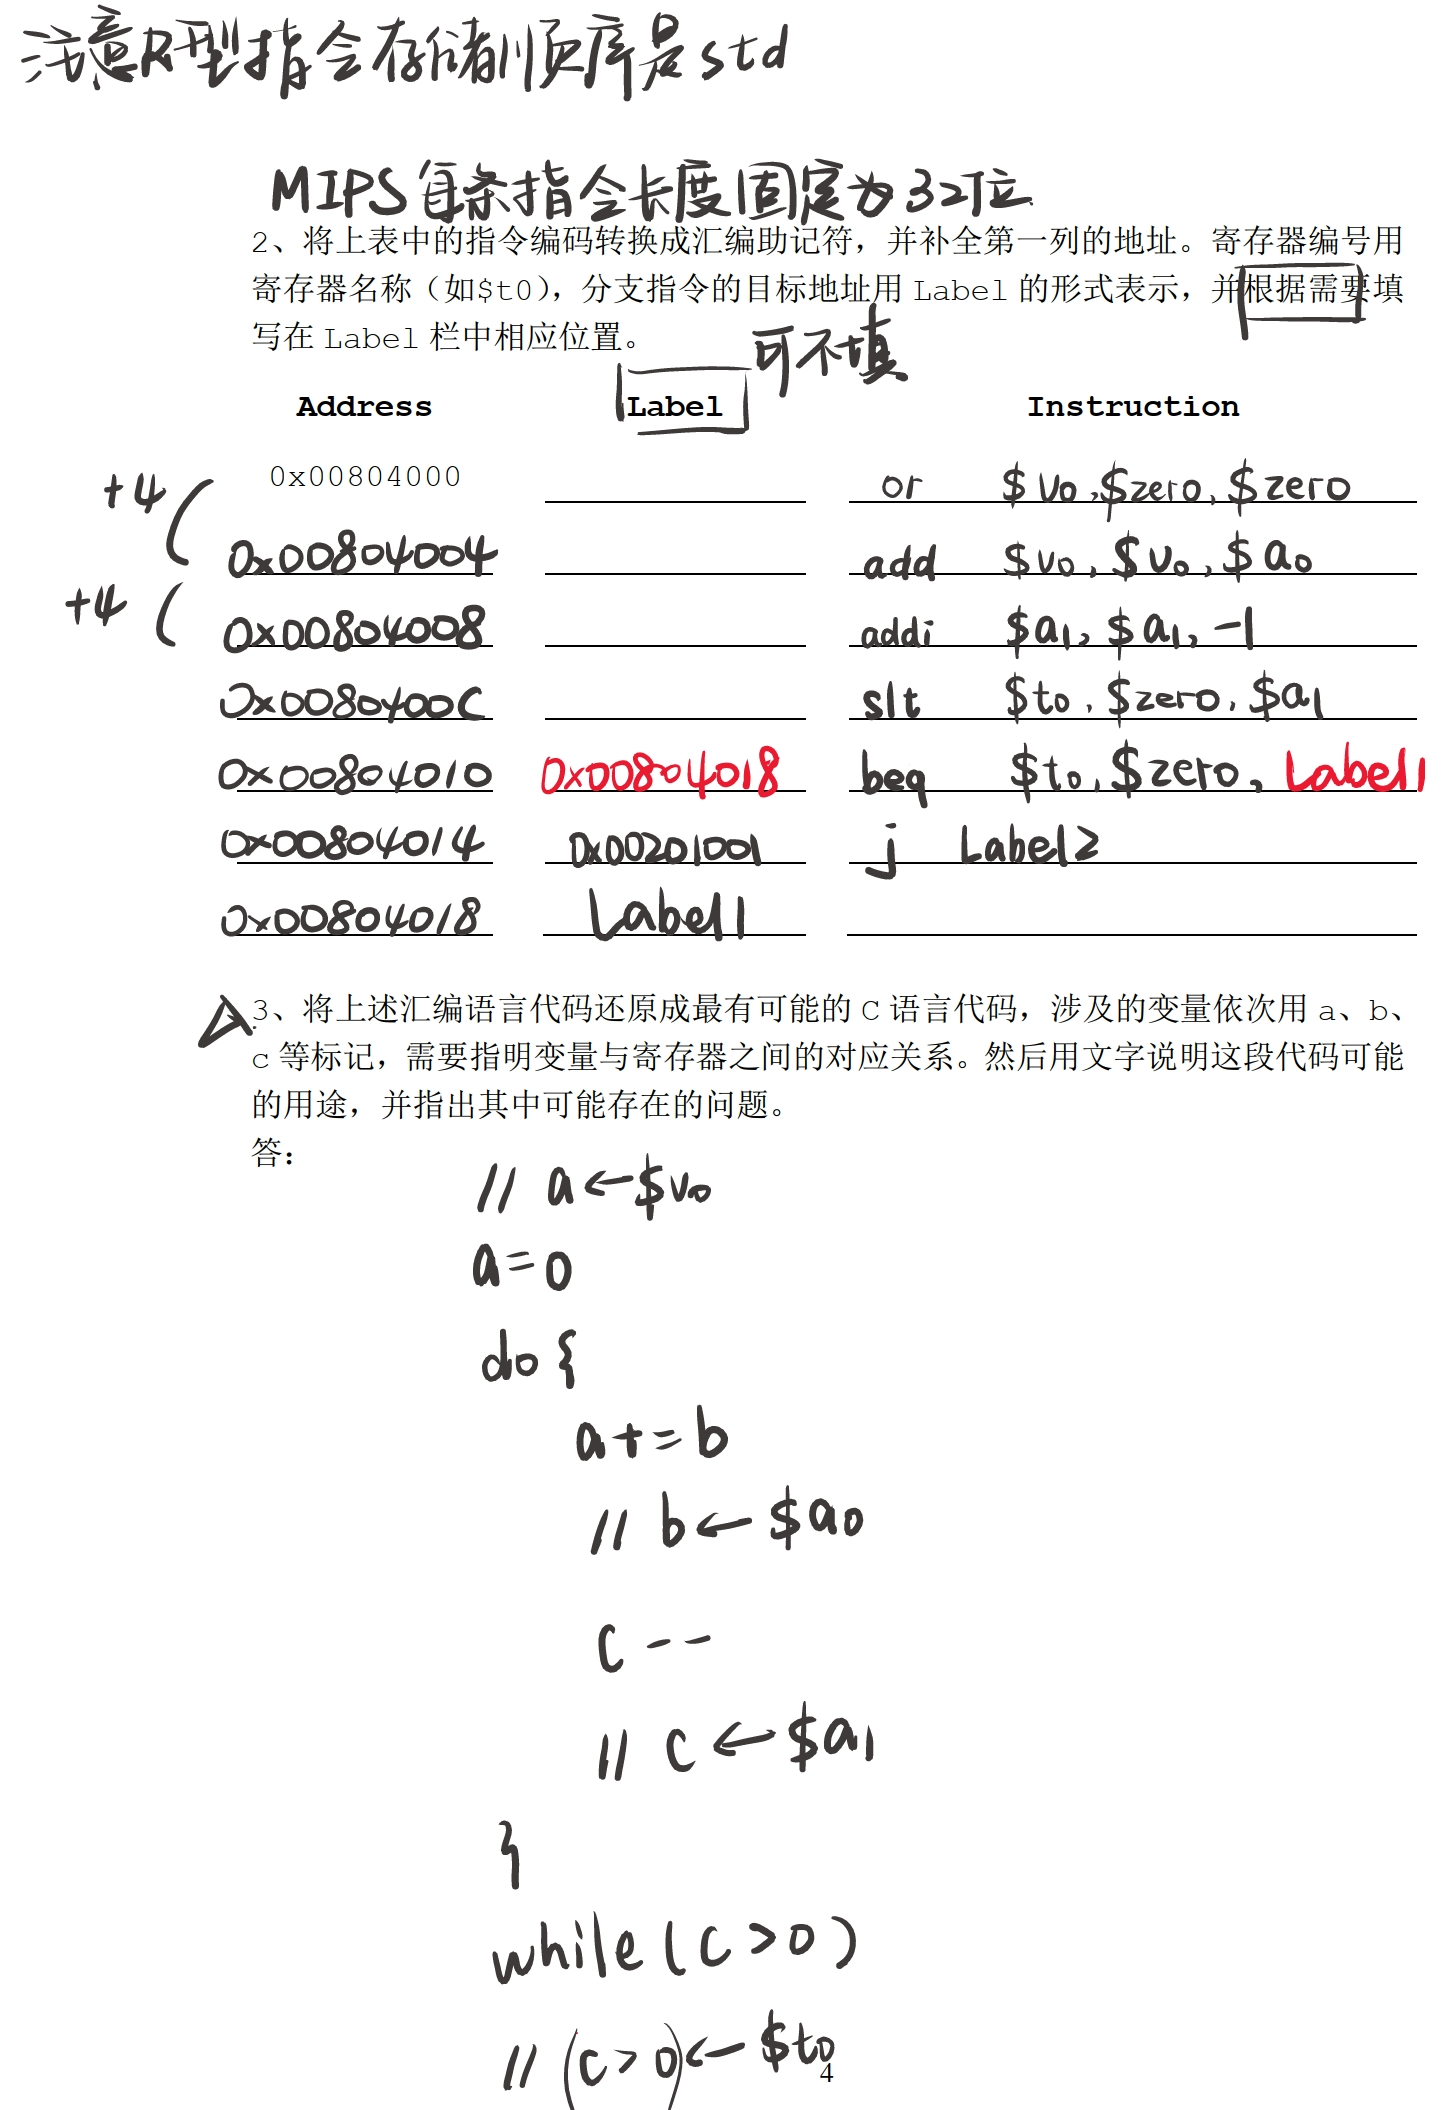 注意R型指令存储顺序是std
MIPS每条指令长度固定为32位
2、将上表中的指令编码转换成汇编助记符，并补全第一列的地址。寄存器编号用
寄存器名称（如$t0），分支指令的目标地址用 Label 的形式表示，并根据需要填
写在 Label 栏中相应位置。
可不填
Address Label Instruction
+4 ( 0x00804000 or $v0,$zero,$zero
0x00804004 add $v0,$v0,$a0
+4 ( 0x00804008 addi $a1,$a1,-1
0x0080400C slt $t0,$zero,$a1
0x00804010 0x00804018 beq $t0,$zero,Label1
0x00804014 0x00201001 j Label2
0x00804018 Label1
3、将上述汇编语言代码还原成最有可能的 C 语言代码，涉及的变量依次用 a、b、
c 等标记，需要指明变量与寄存器之间的对应关系。然后用文字说明这段代码可能
的用途，并指出其中可能存在的问题。
答：
// a←$v0
a=0
do {
a+=b
// b←$a0
c--
// c←$a1
}
while(c>0)
// (c>0)←$t0
4